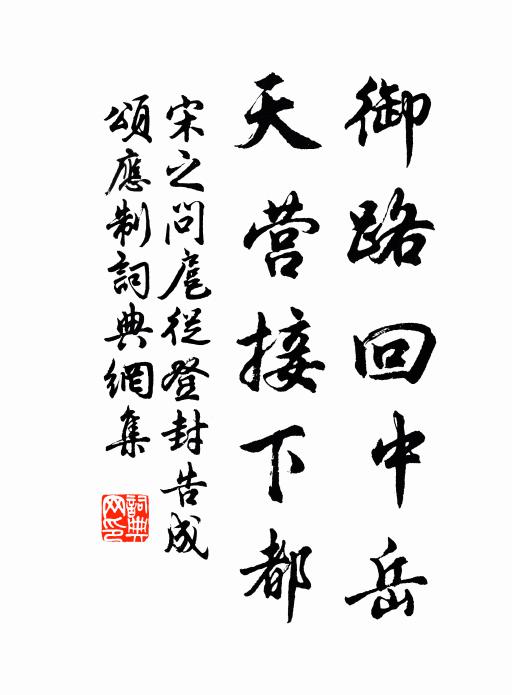 御路回中岳
天营接下都
宋之问扈從登封告成
頌應制詞典網集
詞典网印